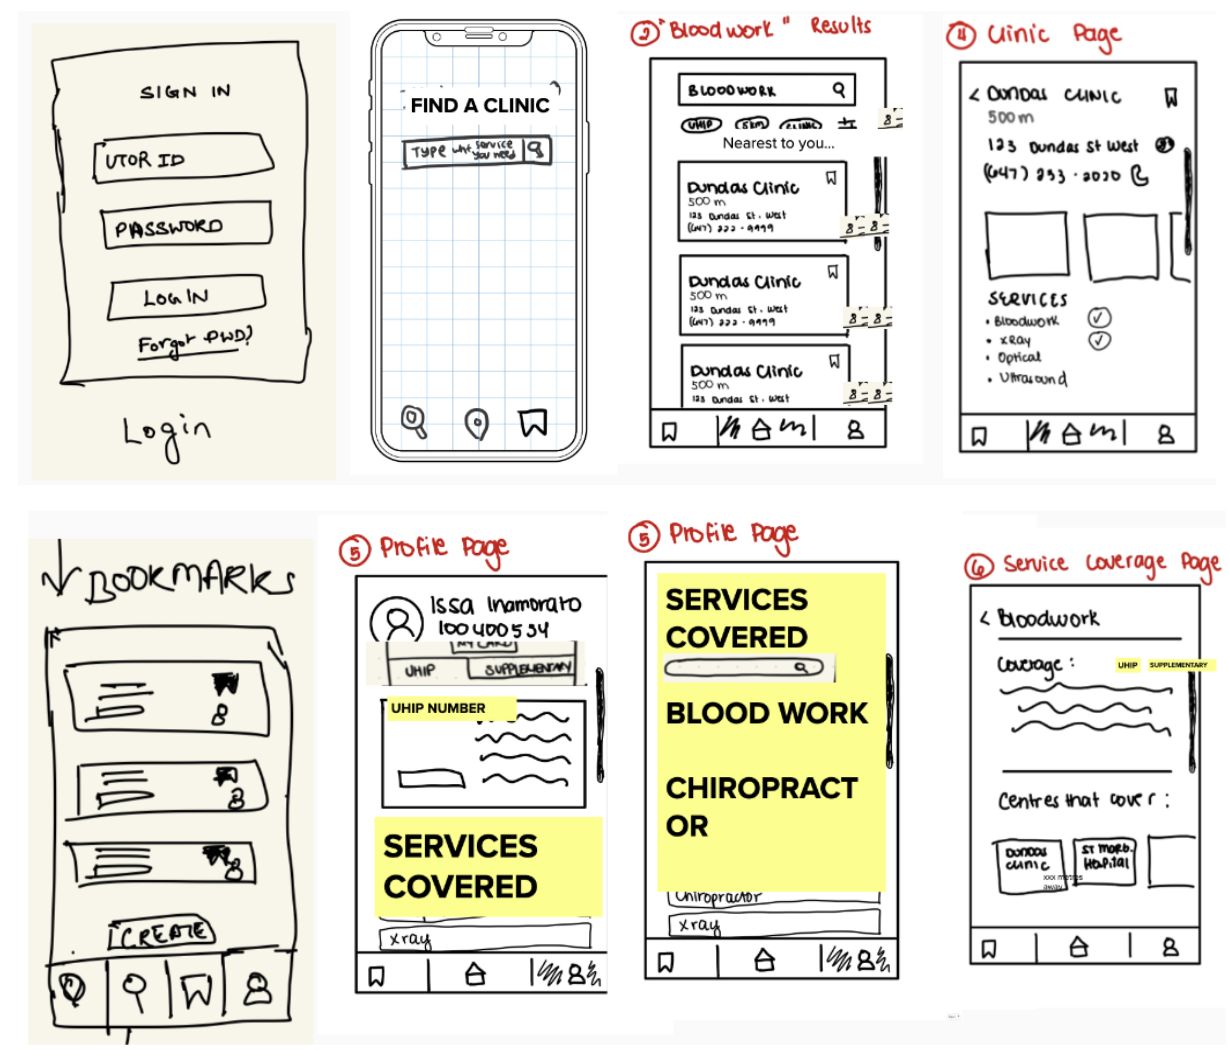 SIGN IN
UTOR ID
PASSWORD
LOGIN
Forgot PWD?
Login
FIND A CLINIC
TYPE wht service you need
③ "Bloodwork" Results
BLOODWORK
UHIP 5km CLINIC
Nearest to you...
Dundas Clinic
500 m
123 Dundas St. West
(647) 222 - 9999
Dundas Clinic
500 m
123 Dundas St. West
(647) 222 - 9999
Dundas Clinic
500 m
123 Dundas St. West
④ Clinic Page
< DUNDAS CLINIC
500 m
123 Dundas St West
(647) 233 - 2020
SERVICES
• Bloodwork
• XRay
• Optical
• Ultrasound
BOOKMARKS
CREATE
⑤ Profile Page
Issa Inamorato
100400534
MY CARD
UHIP SUPPLEMENTARY
UHIP NUMBER
SERVICES
COVERED
xray
⑤ Profile Page
SERVICES
COVERED
BLOOD WORK
CHIROPRACT
OR
Chiropractor
xray
⑥ Service Coverage Page
< Bloodwork
Coverage: UHIP SUPPLEMENTARY
Centres that cover:
DUNDAS
CLINIC
xxx metres
away
ST MORB.
HOSPITAL